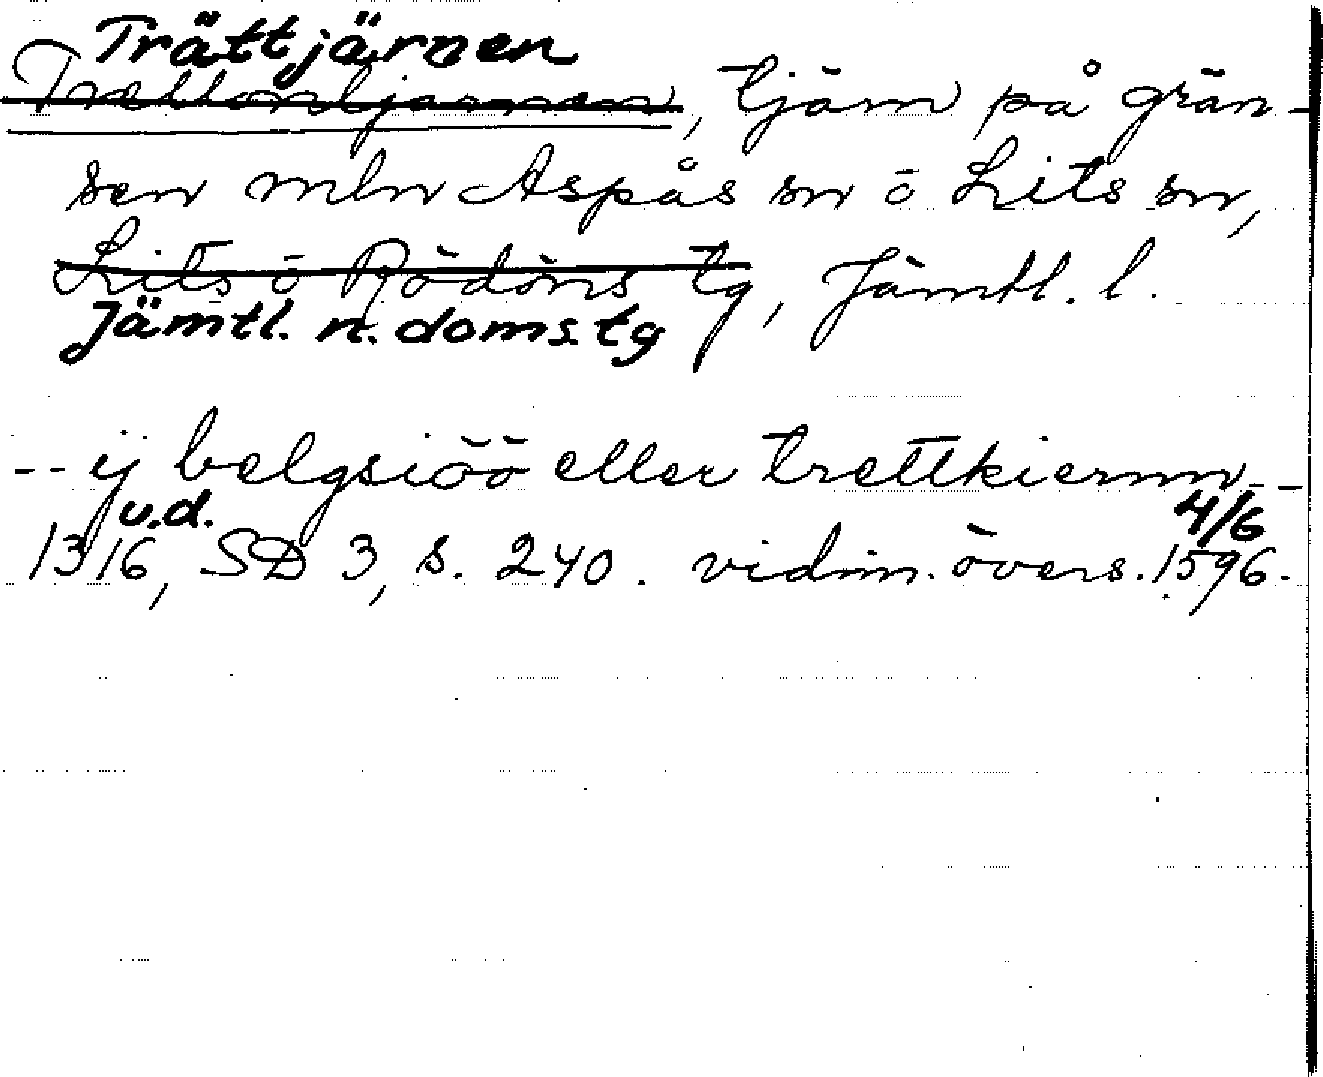 Trättjärnen
Trettontjärnen, tjärn på grän-
sen mln Aspås sn o Lits sn,
Lits o Rödöns tg, Jämtl. l.
Jämtl. n. domstg
-- ij belgsiöö eller trettkiernn --
u.d. 4/6
1316, SD 3, s. 240. vidim. övers. 1596.